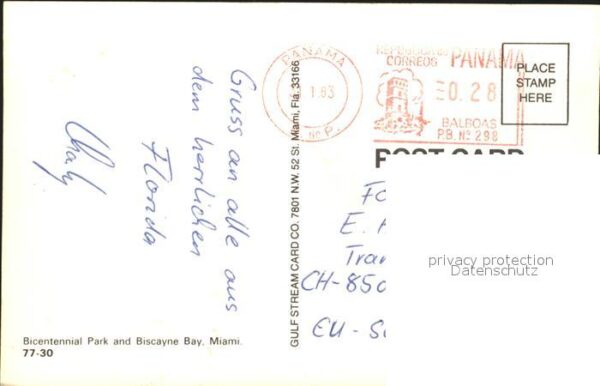 Gruss an alle aus
dem herrlichen
Florida
Bicentennial Park and Biscayne Bay, Miami.
77-30
GULF STREAM CARD CO. 7801 N.W. 52 St. Miami, Fla. 33166
PANAMA
1 83
REPUBLICA DE PANAMA
CORREOS
0.28
BALBOAS
P.B. Nº 298
PLACE
STAMP
HERE
POST CARD
E.
Tran
CH-850
EU-S
privacy protection
Datenschutz